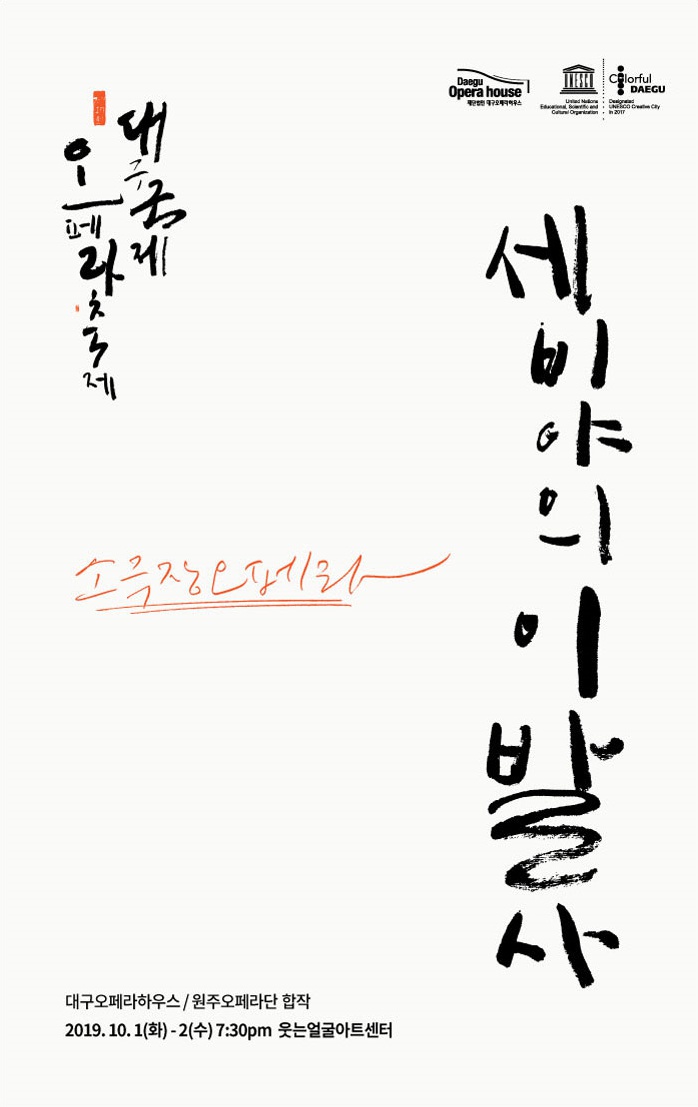 대구국제
오페라축제
Daegu
Opera house
재단법인 대구오페라하우스
UNESCO
United Nations
Educational, Scientific and
Cultural Organization
Colorful
DAEGU
Designated
UNESCO Creative City
in 2017
세비야의 이발사
소극장오페라
대구오페라하우스 / 원주오페라단 합작
2019. 10. 1(화) - 2(수) 7:30pm 웃는얼굴아트센터